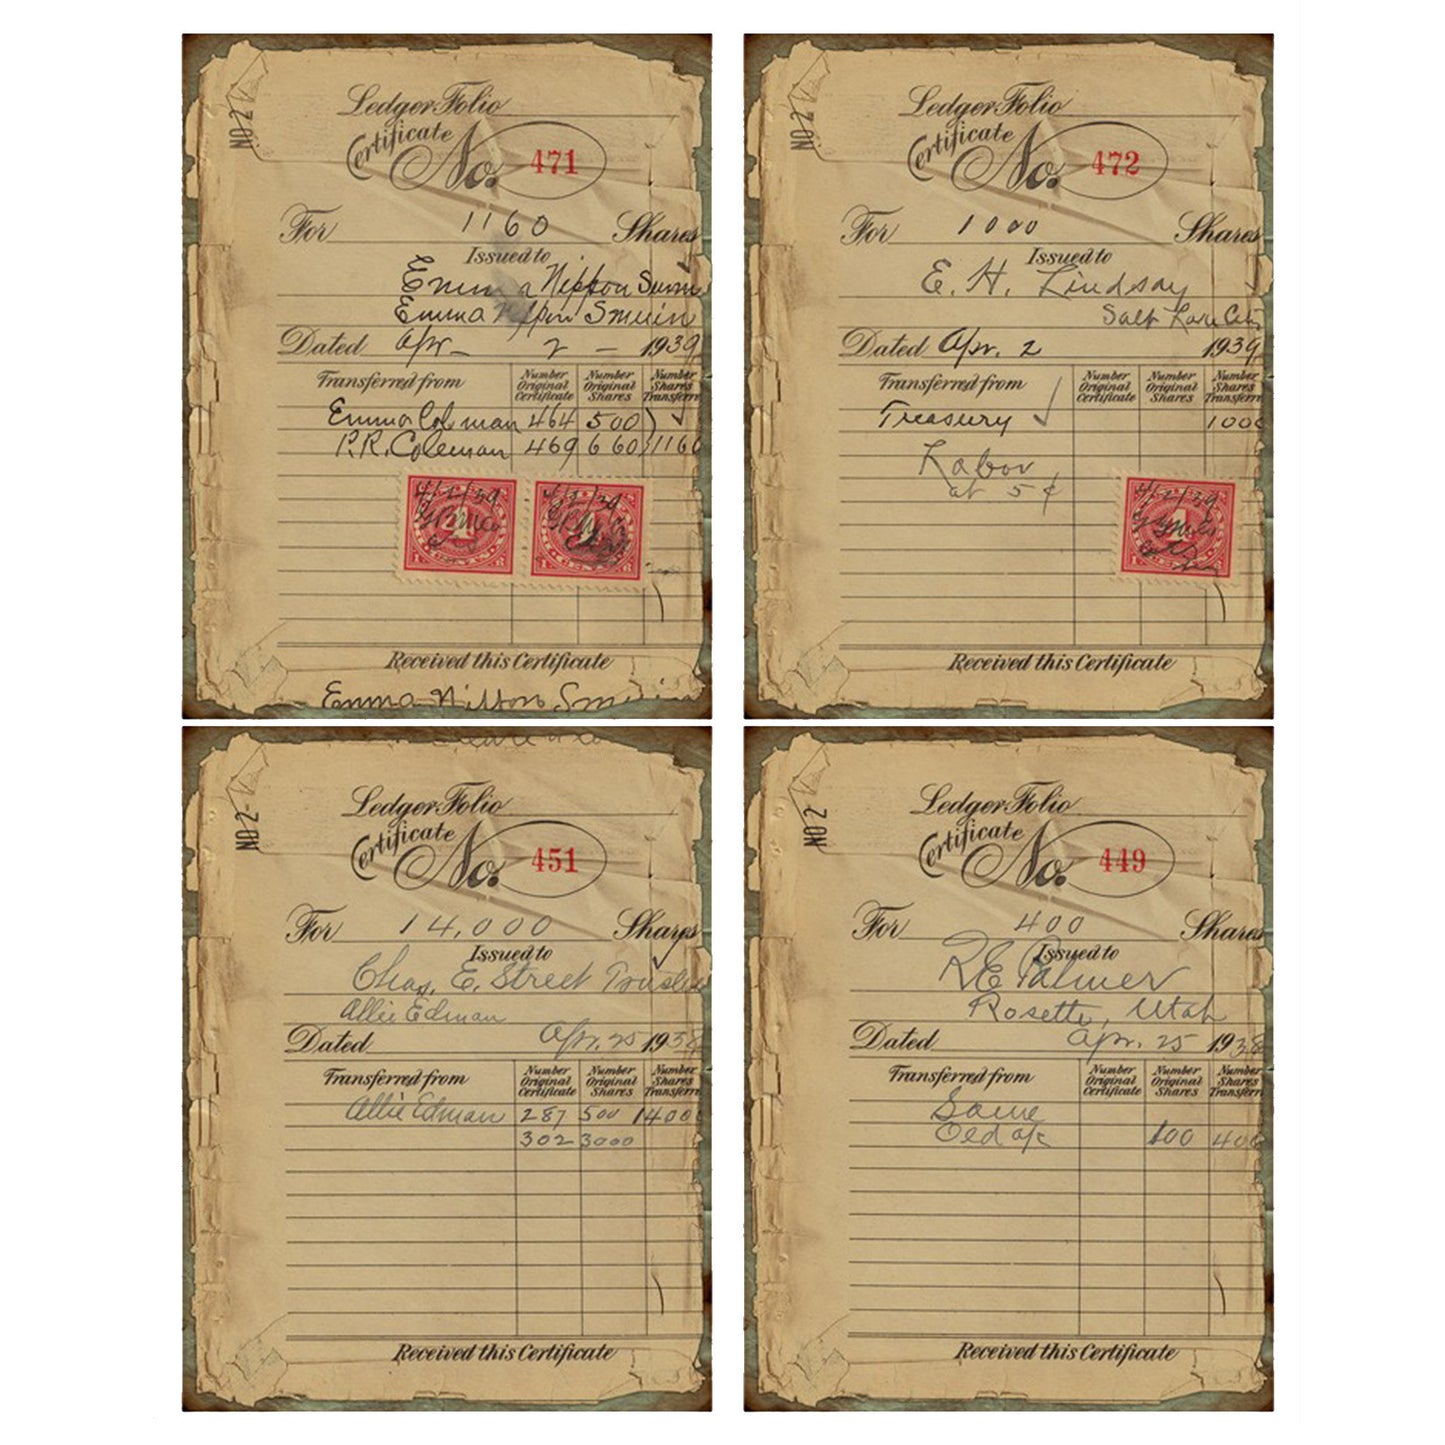 NO 2
Ledger Folio
Certificate No. 471
For 1160 Shares
Issued to
Emma Nippon
Emma Smuin
Dated Apr - 2 - 1939
Transferred from Number Original Certificate Number Original Shares Number Shares Transferre
Emma Coleman 464 500
P.R. Coleman 469 660 1160
4/2/39 4/2/39
Received this Certificate
Emma
NO 2
Ledger Folio
Certificate No. 472
For 1000 Shares
Issued to
E. H. Lindsay
Salt Lake City
Dated Apr. 2 1939
Transferred from Number Original Certificate Number Original Shares Number Shares Transferre
Treasury 1000
Labor
at 5 ¢
4/2/39
Received this Certificate
NO 2
Ledger Folio
Certificate No. 451
For 14,000 Shares
Issued to
Chas. E. Street Trustee
Allie Edman
Dated Apr. 25 1938
Transferred from Number Original Certificate Number Original Shares Number Shares Transferre
Allie Edman 287 500 14000
302 3000
Received this Certificate
NO 2
Ledger Folio
Certificate No. 449
For 400 Shares
Issued to
R E Palmer
Rosette, Utah
Dated Apr. 25 1938
Transferred from Number Original Certificate Number Original Shares Number Shares Transferre
Same
Old a/c 100 400
Received this Certificate